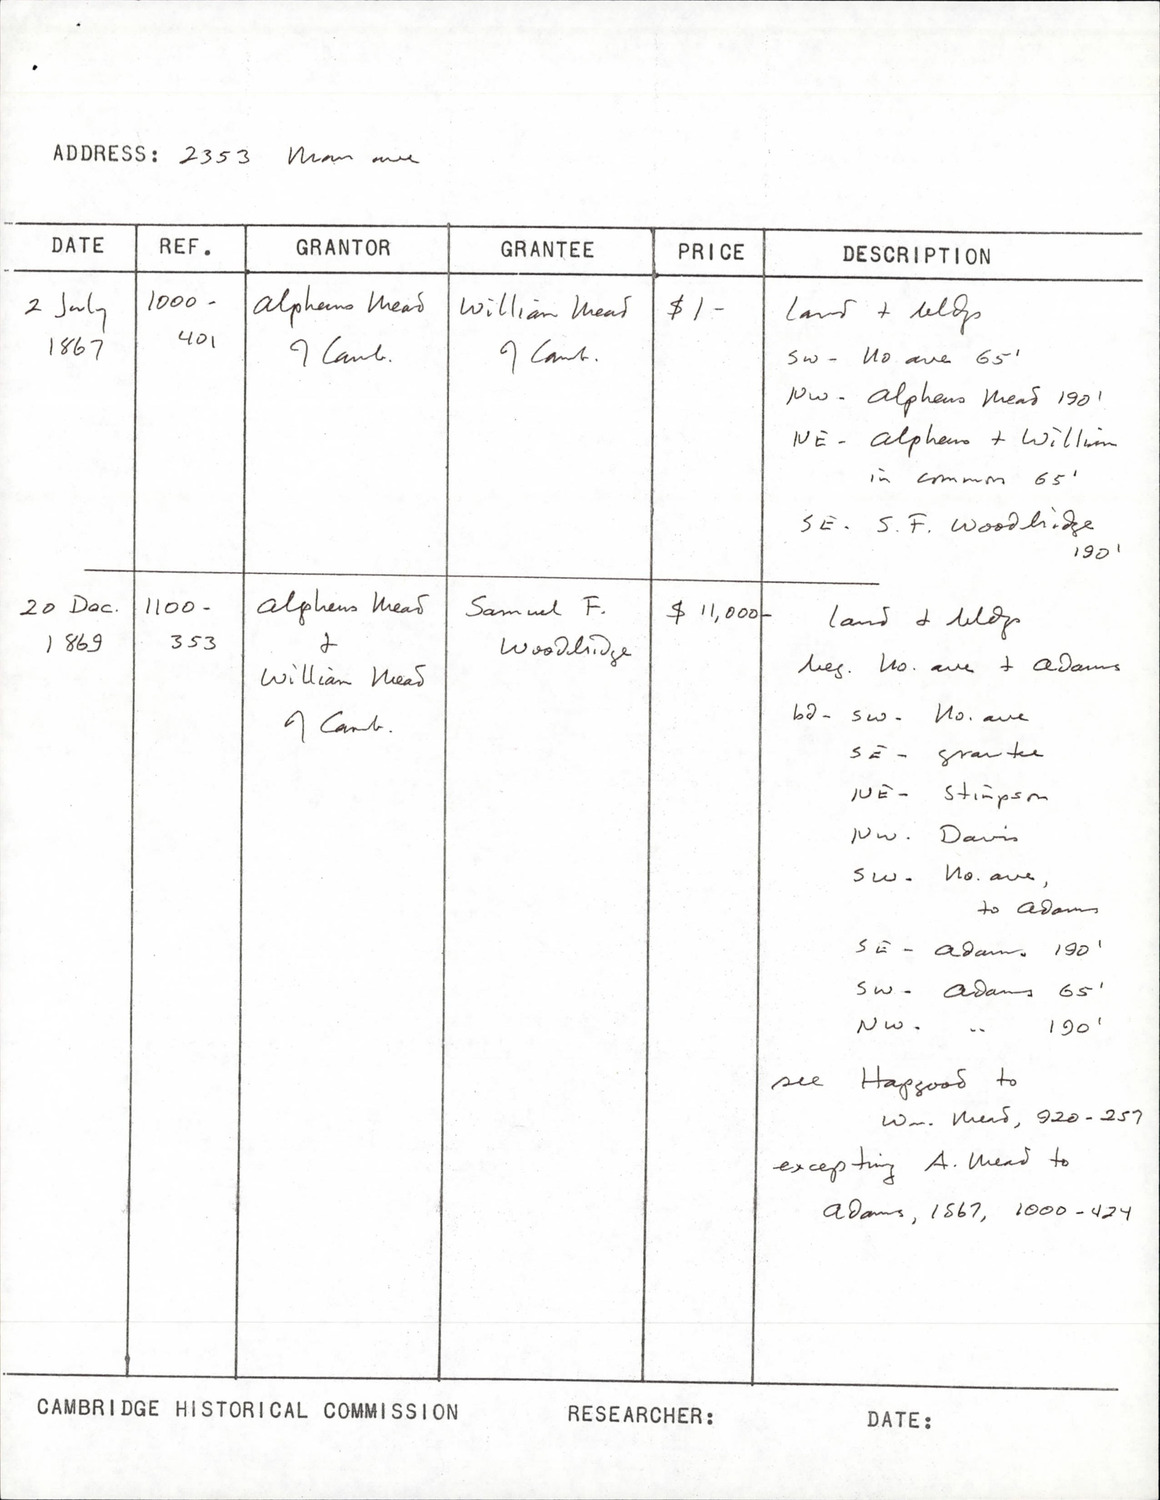 ADDRESS: 2353 Mass ave
DATE REF. GRANTOR GRANTEE PRICE DESCRIPTION
2 July 1867
1000-401
Alpheus Mead
of Camb.
William Mead
of Camb.
$1-
land + bldgs
SW- No ave 65'
NW- Alpheus Mead 190'
NE- Alpheus + William
in common 65'
SE- S.F. Woodbridge
190'
20 Dec.
1869
1100-
353
Alpheus Mead
&
William Mead
of Camb.
Samuel F.
Woodbridge
$11,000-
land + bldgs
beg. No. ave + Adams
bd- SW- No. ave
SE- grantee
NE- Stimpson
NW. Davis
SW- No. ave,
to Adams
SE- Adams 190'
SW- Adams 65'
NW. " 190'
see Hapgood to
Wm. Mead, 920-257
excepting A. Mead to
Adams, 1867, 1000-424
CAMBRIDGE HISTORICAL COMMISSION RESEARCHER: DATE: